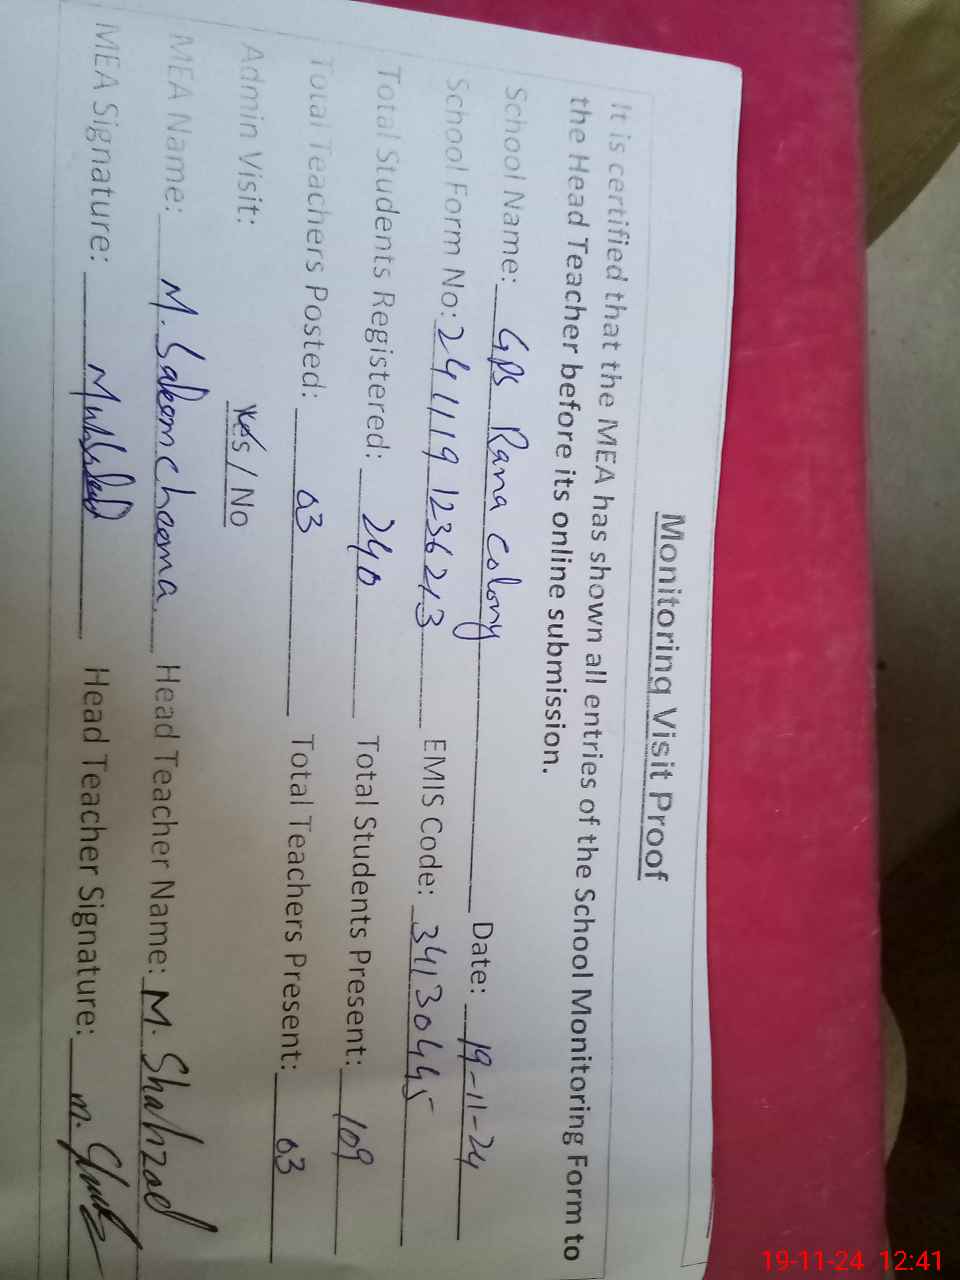 Monitoring Visit Proof
It is certified that the MEA has shown all entries of the School Monitoring Form to
the Head Teacher before its online submission.
School Name: GPS Rana Colony Date: 19-11-24
School Form No: 241119 1236213 EMIS Code: 34130445
Total Students Registered: 240 Total Students Present: 109
Total Teachers Posted: 03 Total Teachers Present: 03
Admin Visit: Yes / No
MEA Name: M. Saleem cheema Head Teacher Name: M. Shahzad
MEA Signature: Head Teacher Signature: M.
19-11-24 12:41